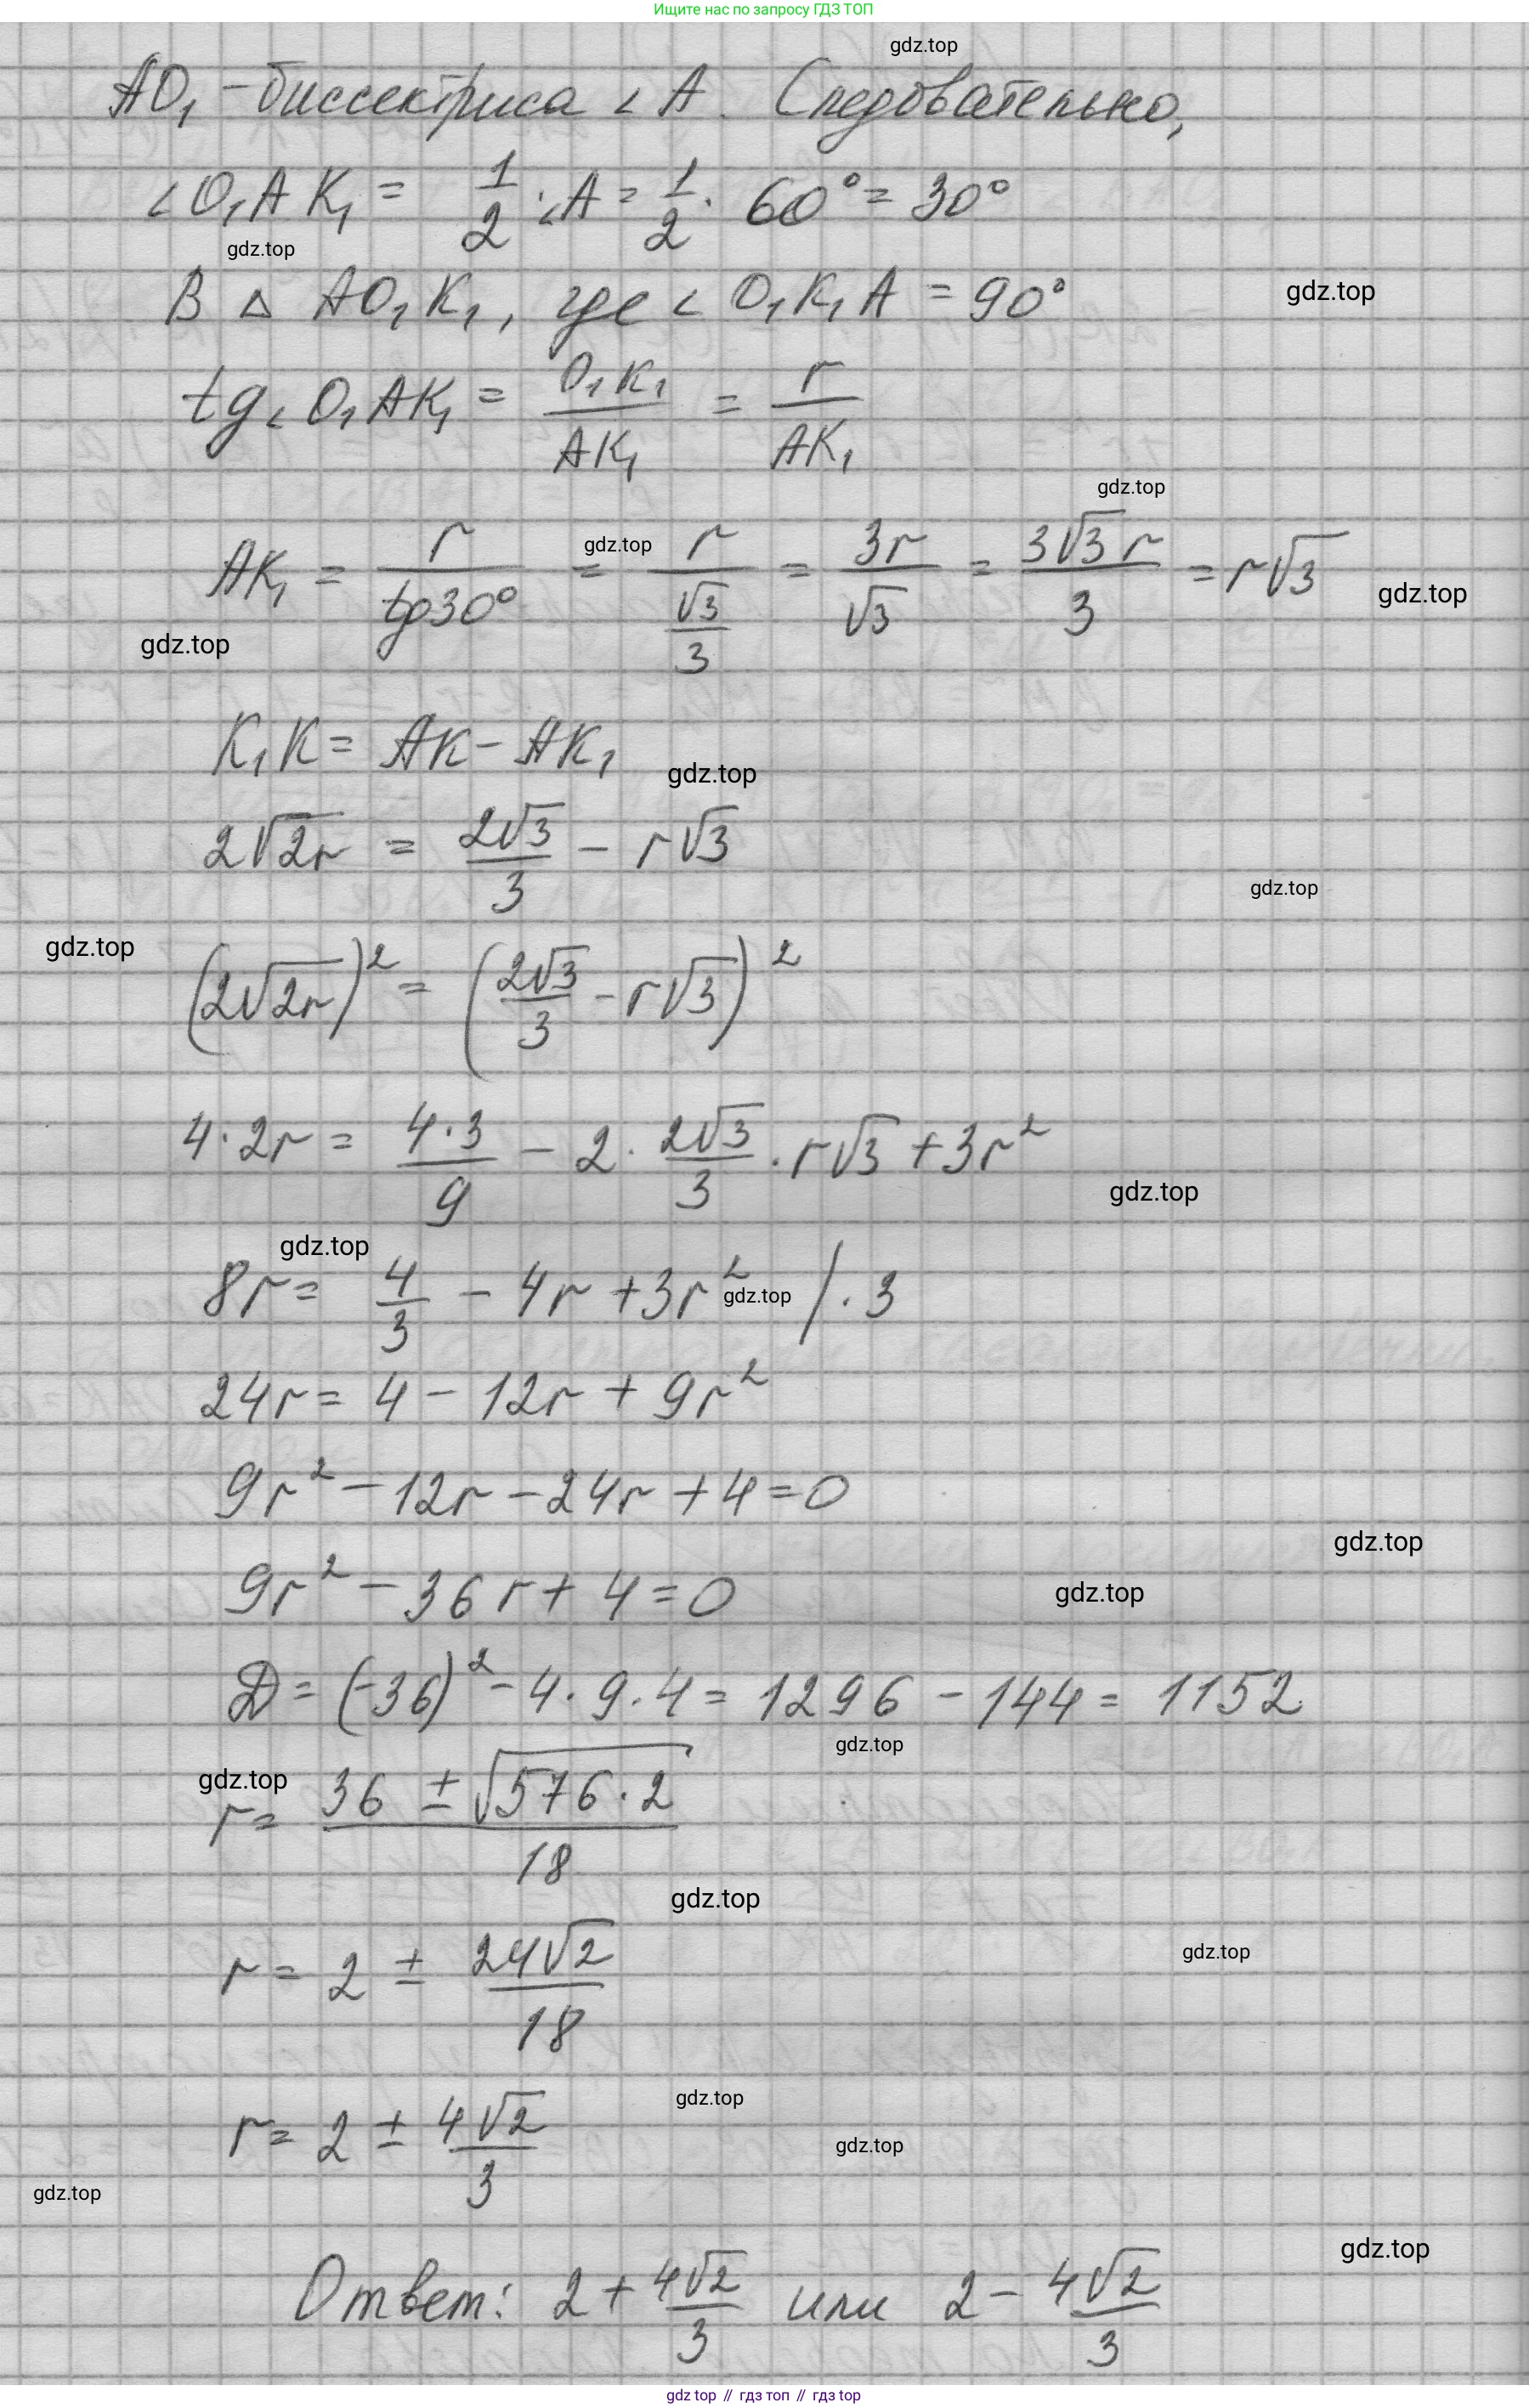 Ищите нас по запросу ГДЗ ТОП
gdz.top
AO₁ – биссектриса ∠A. Следовательно,
∠O₁AK₁ = 1/2 · ∠A = 1/2 · 60° = 30°
gdz.top
В △ AO₁K₁, где ∠O₁K₁A = 90°
gdz.top
tg∠O₁AK₁ = O₁K₁/AK₁ = r/AK₁
gdz.top
gdz.top
AK₁ = r/tg30° = r/(√3/3) = 3r/√3 = 3√3r/3 = r√3
gdz.top
gdz.top
K₁K = AK – AK₁
gdz.top
2√2r = 2√3/3 – r√3
gdz.top
gdz.top
(2√2r)² = (2√3/3 – r√3)²
4·2r = 4·3/9 – 2·2√3/3·r√3 + 3r²
gdz.top
gdz.top
8r = 4/3 – 4r + 3r² /·3
gdz.top
24r = 4 – 12r + 9r²
9r² – 12r – 24r + 4 = 0
gdz.top
9r² – 36r + 4 = 0
gdz.top
D = (-36)² – 4·9·4 = 1296 – 144 = 1152
gdz.top
gdz.top
r = (36 ± √576·2)/18
gdz.top
gdz.top
r = 2 ± 24√2/18
gdz.top
r = 2 ± 4√2/3
gdz.top
gdz.top
gdz.top
Ответ: 2 + 4√2/3 или 2 – 4√2/3
gdz top // гдз топ // гдз top